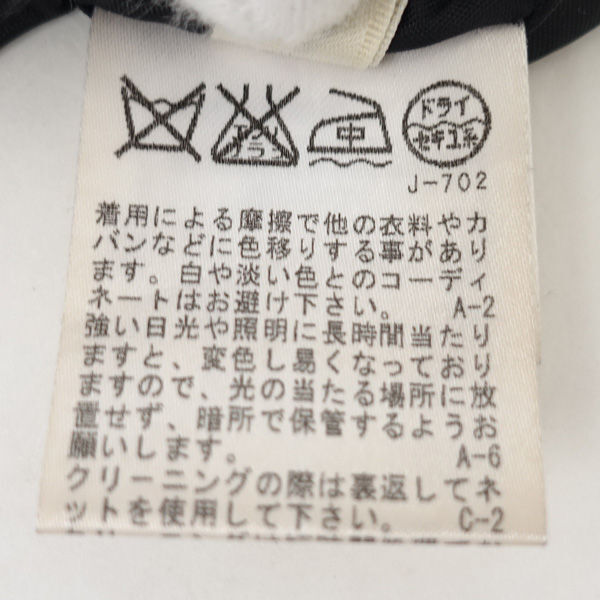 エンソ
サラシ
中
ドライ
セキユ系
J-702
着用による摩擦で他の衣料やカ
バンなどに色移りする事があり
ます。白や淡い色とのコーディ
ネートはお避け下さい。 A-2
強い日光や照明に長時間当たり
ますと、変色し易くなっており
ますので、光の当たる場所に放
置せず、暗所で保管するようお
願いします。 A-6
クリーニングの際は裏返してネ
ットを使用して下さい。 C-2